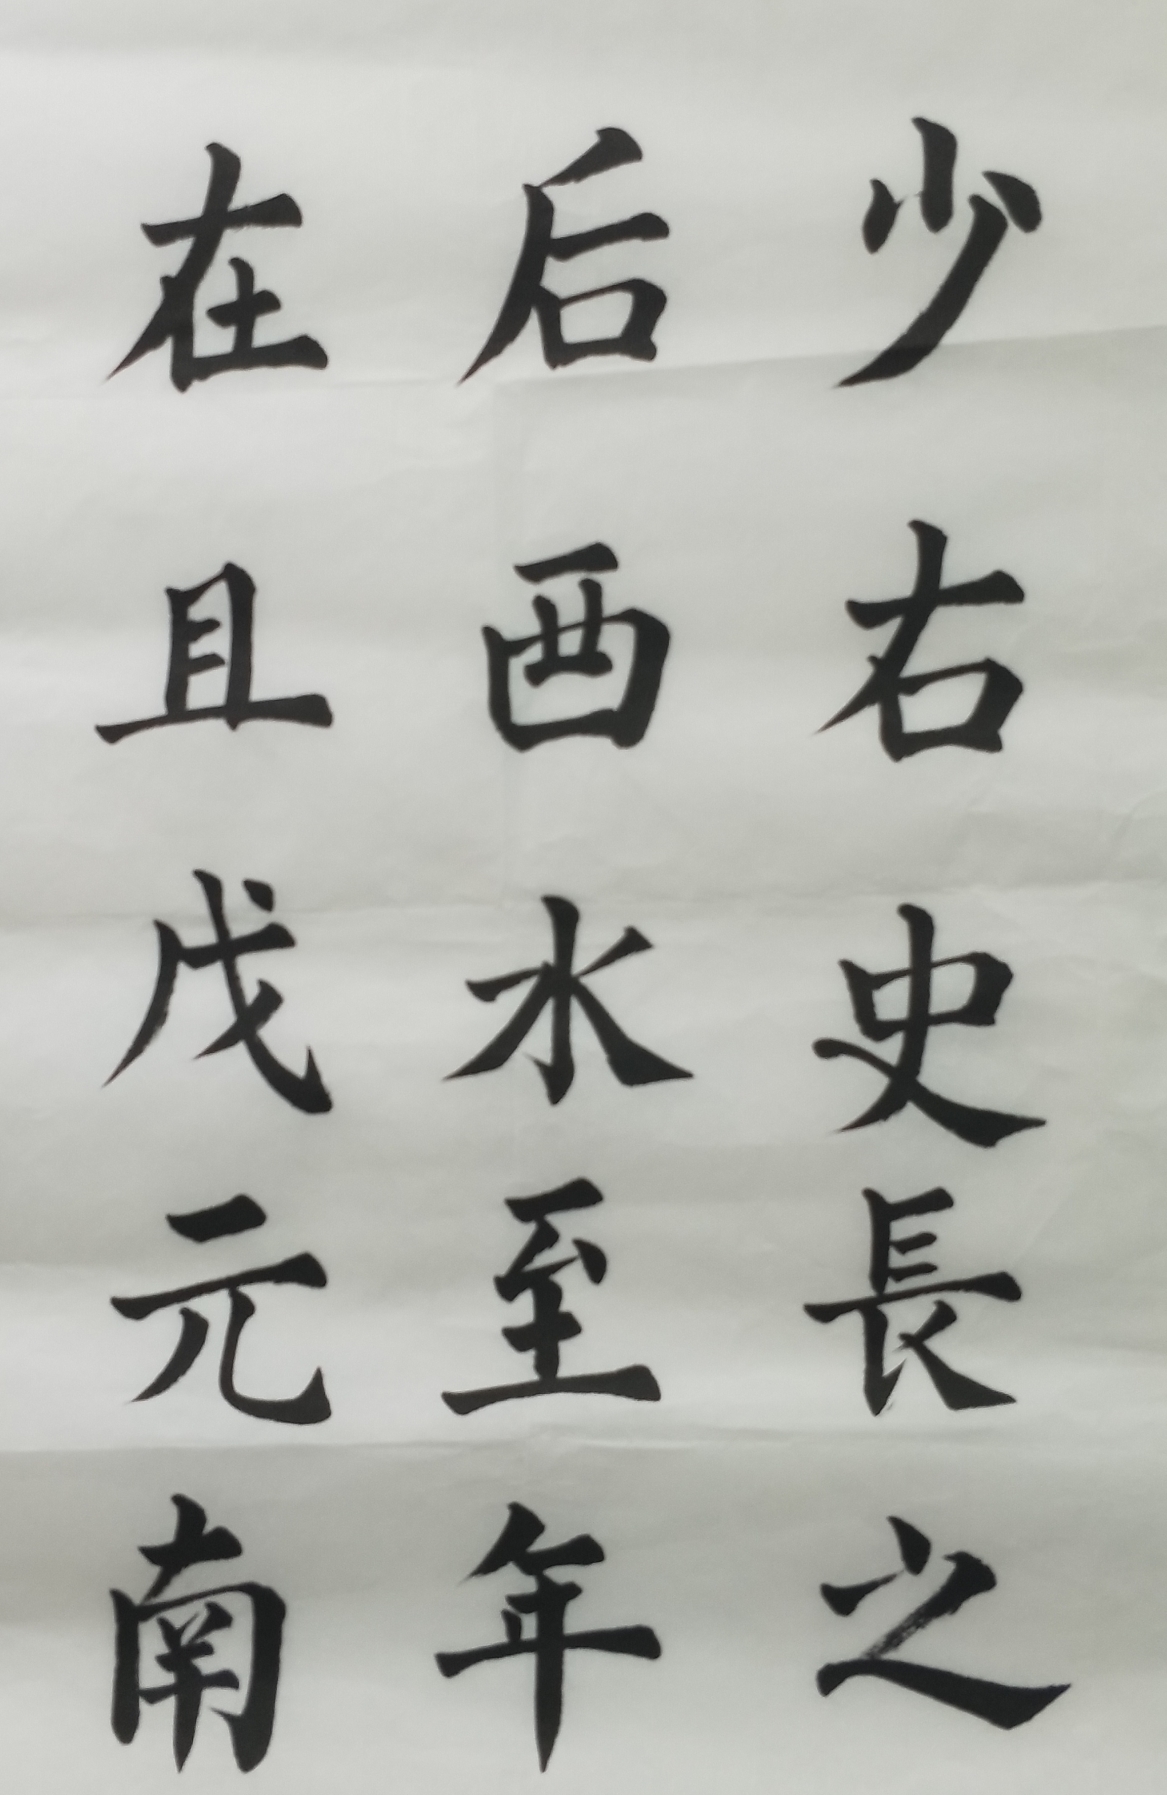 少右史長之
后西水至年
在且戊元南